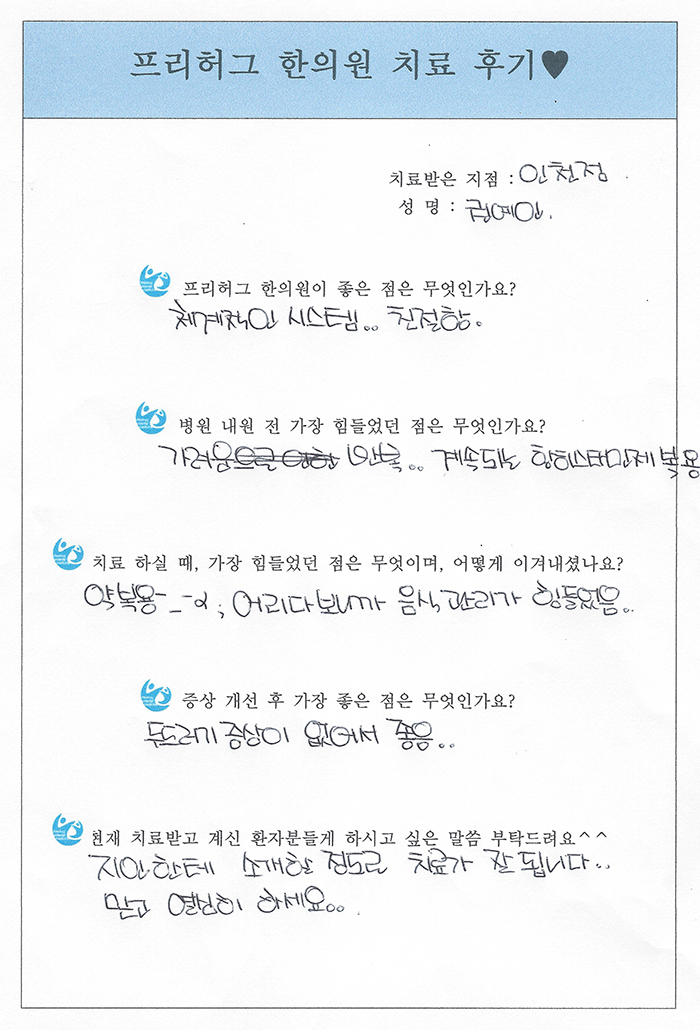 프리허그 한의원 치료 후기♥
치료받은 지점 : 인천점.
성 명 : 권예인.
프리허그 한의원이 좋은 점은 무엇인가요?
체계적인 시스템.. 친절함.
병원 내원 전 가장 힘들었던 점은 무엇인가요?
가려움 반복.. 계속되는 항히스타민제 복용
치료 하실 때, 가장 힘들었던 점은 무엇이며, 어떻게 이겨내셨나요?
약복용-_-; 어리다보니까 음식관리가 힘들었음..
증상 개선 후 가장 좋은 점은 무엇인가요?
두드러기 증상이 없어서 좋음..
현재 치료받고 계신 환자분들게 하시고 싶은 말씀 부탁드려요^^
지인한테 소개할 정도로 치료가 잘 됩니다..
믿고 열심히 하세요..